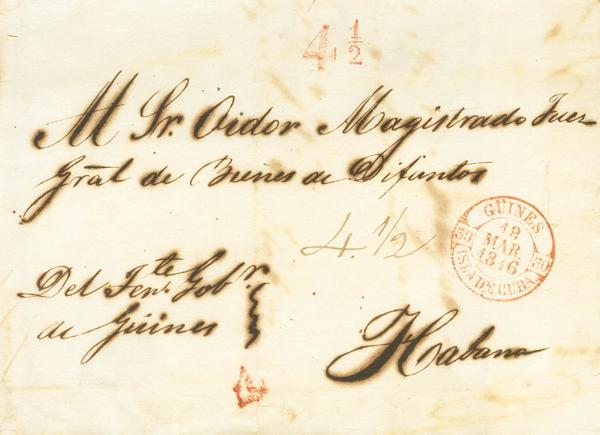 4 1/2
Al Sr. Oidor Magistrado Juez
Gral de Bienes de Difuntos
4. 1/2
GÜINES
18
MAR.
1846
39 39
ISLA DE CUBA.
Del Tente. Gobr.
de Güines
Habana